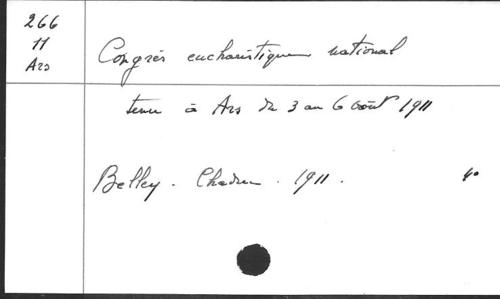 266
11
Ars
Congrès eucharistique national
tenu à Ars du 3 au 6 août 1911
Belley. Chaduc. 1911.
4°